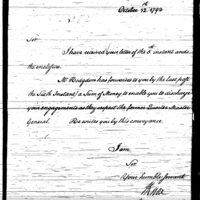 October 12th 1793
Sir
I have received your letter of the 5th instant and
the enclosure.
Mr Hodgdon has forwarded to you by the last post
(the Sixth Instant) a Sum of Money to enable you to discharge
your engagements as they respect the former Quarter Master
General. He writes you by this conveyance.
I am
Sir
Your humble servant